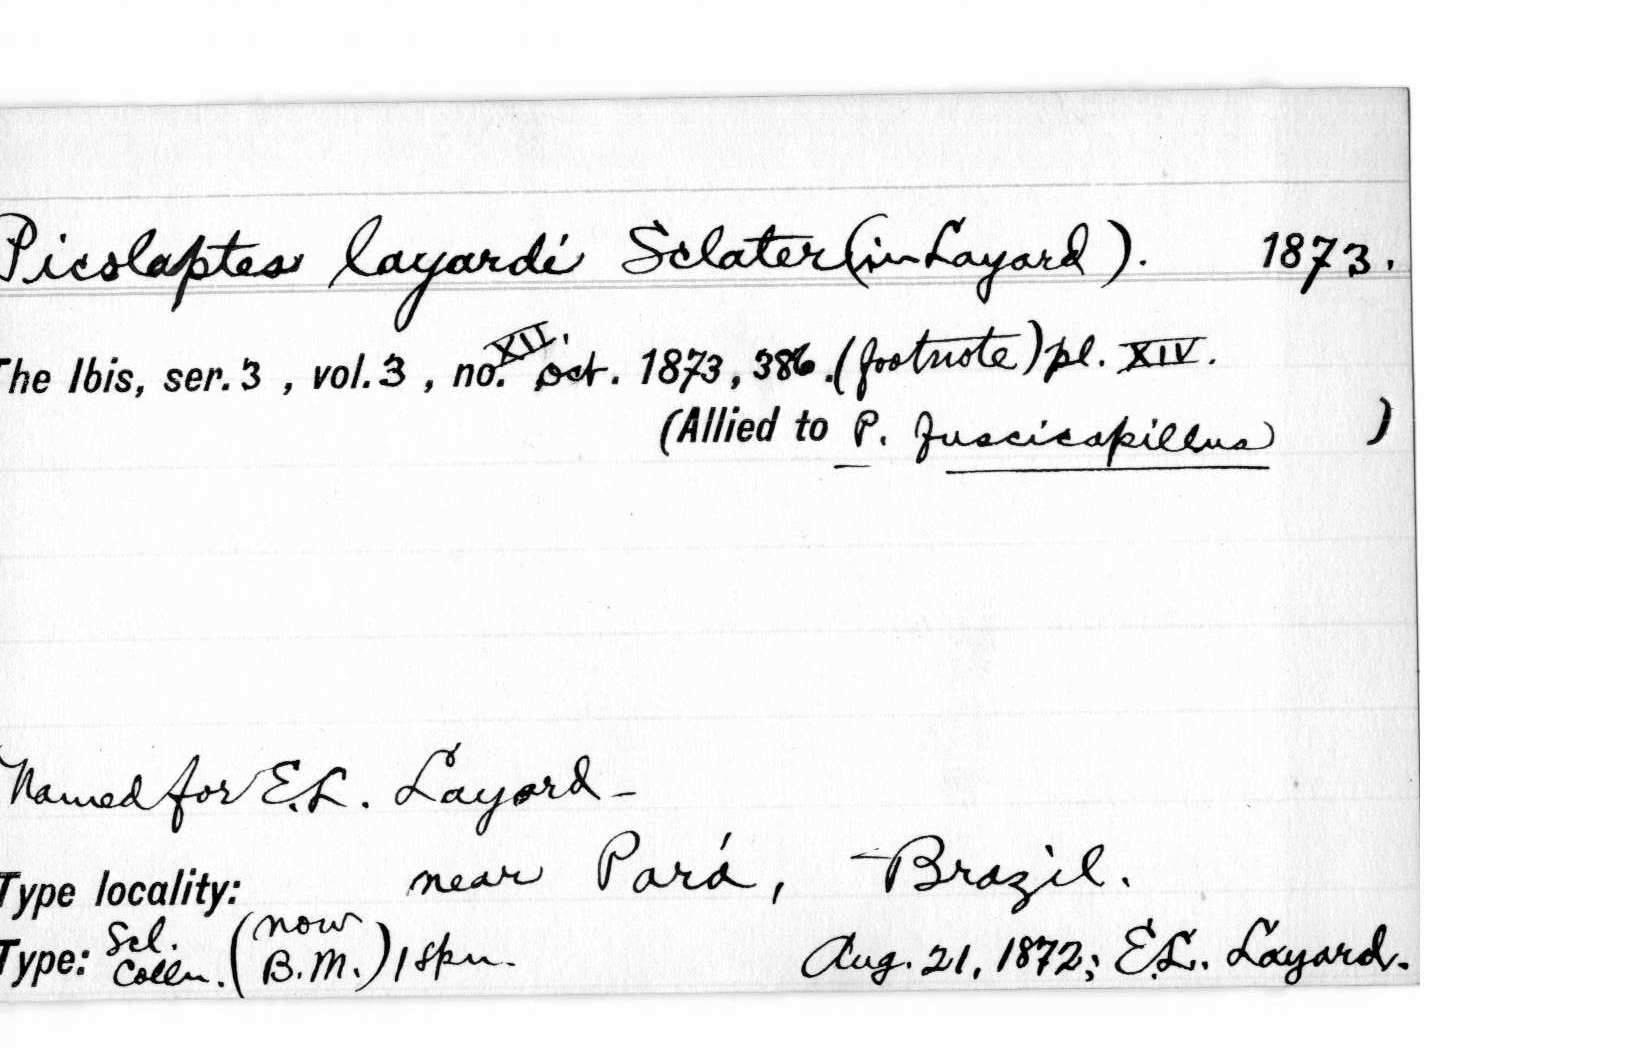 Picolaptes layardi Sclater (in Layard). 1873.
The Ibis, ser. 3, vol. 3, no. XII. Oct. 1873, 386. (footnote) pl. XIV.
(Allied to P. fuscicapillus)
Named for E.L. Layard -
Type locality: near Pará, Brazil.
Type: Scl. Colln. (now B.M.) 1 spn. Aug. 21, 1872; E.L. Layard.